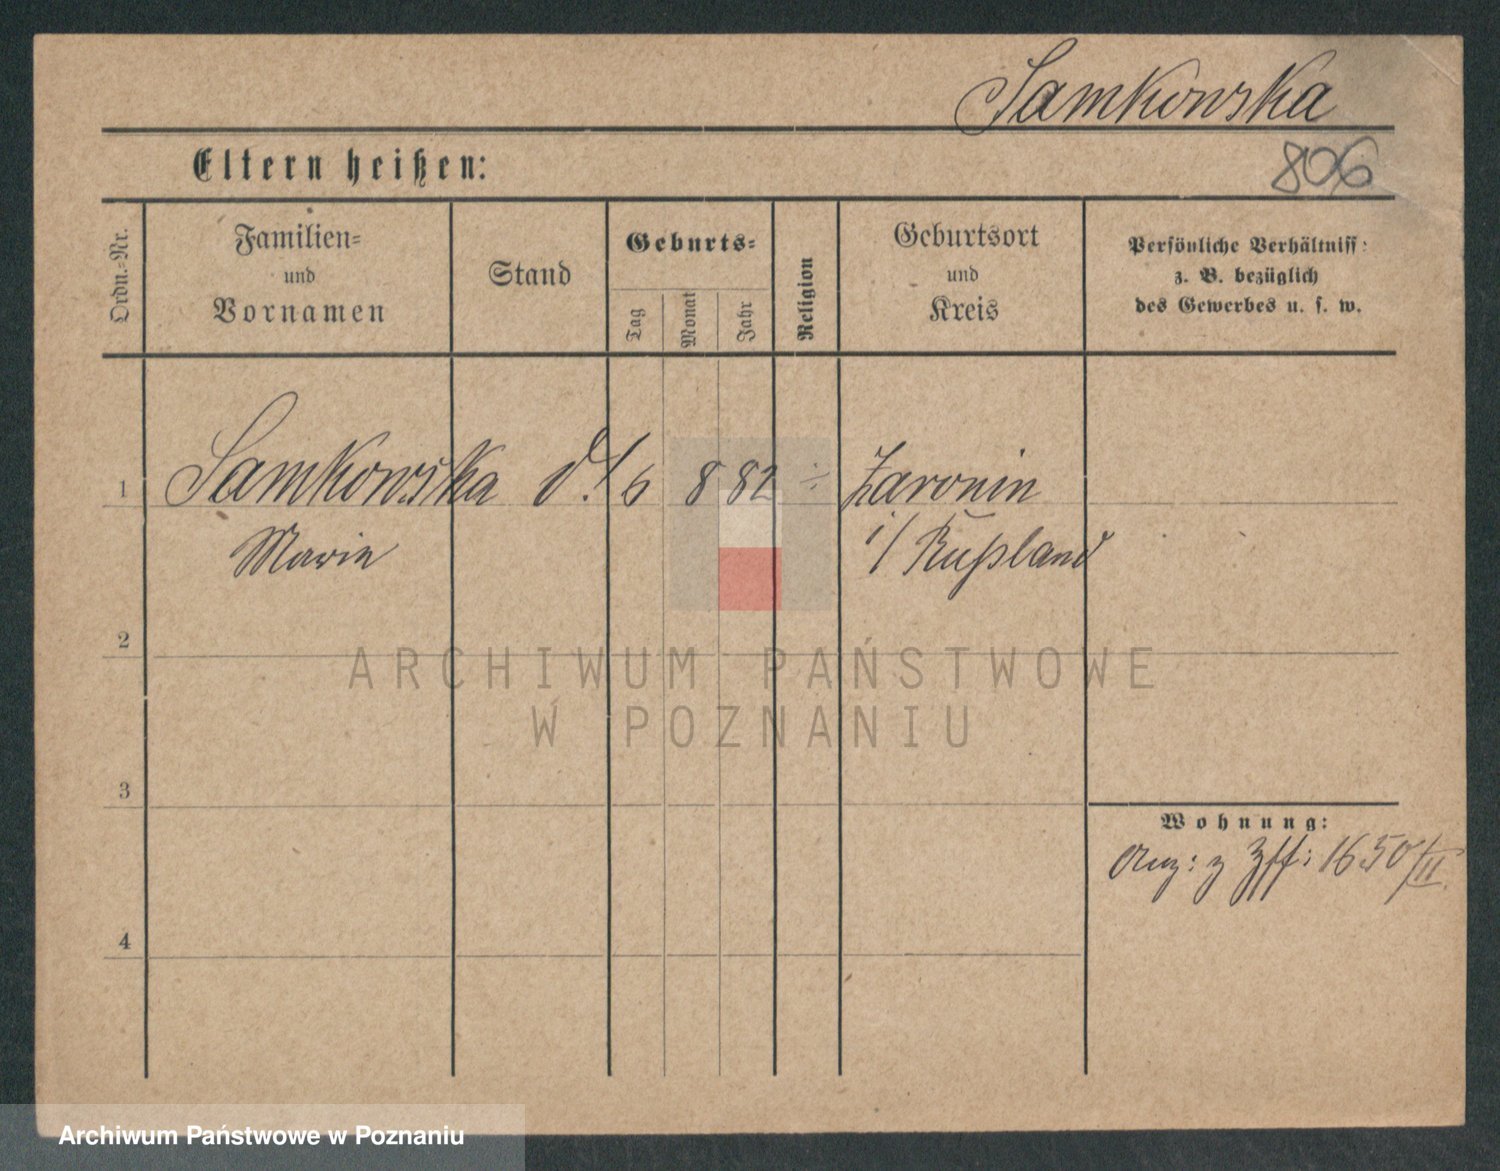 Samkowska
Eltern heißen:
806
Ordn.-Nr.
Familien-
und
Vornamen
Stand
Geburts-
Tag
Monat
Jahr
Religion
Geburtsort
und
Kreis
Persönliche Verhältniss:
z. B. bezüglich
des Gewerbes u. s. w.
1 Samkowska d. 6 8 82 ÷ Zaronin
Marie i/ Rußland
2
ARCHIWUM PAŃSTWOWE
W POZNANIU
3
Wohnung:
Anz: z Zff: 1650/II.
4
Archiwum Państwowe w Poznaniu